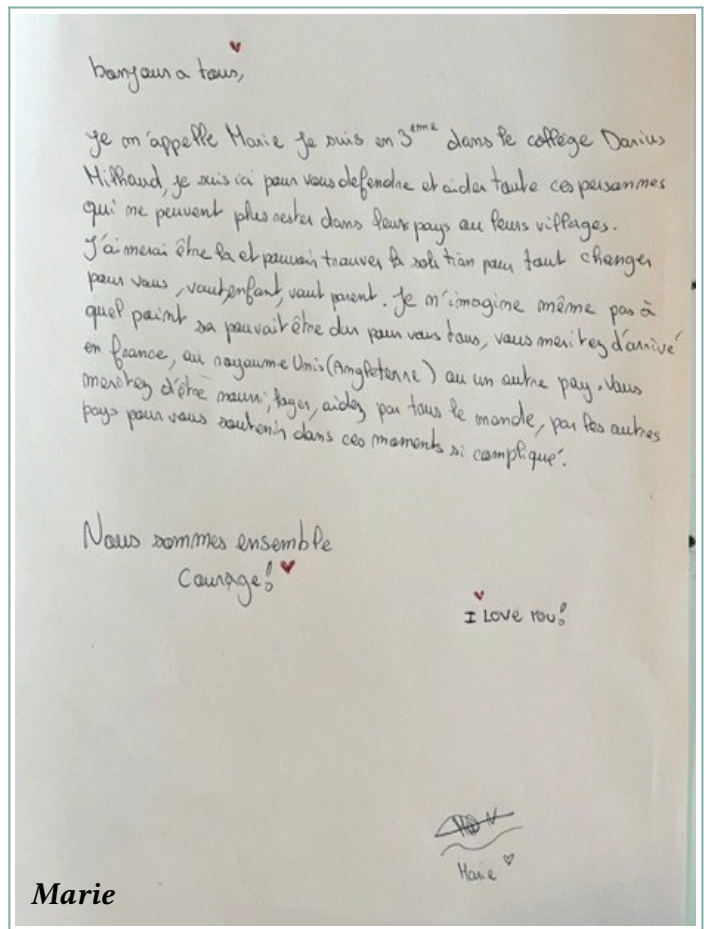 bonjour a tous,
Je m'appelle Marie je suis en 3ème dans le collège Darius
Milhaud, je suis ici pour vous defendre et aider toute ces personnes
qui ne peuvent plus rester dans leurs pays ou leurs villages.
J'aimerai être la et pouvoir trouver la solution pour tout changer
pour vous, vout enfant, vout parent. Je n'imagine même pas à
quel point sa pouvait être dur pour vous tous, vous meritez d'arrivé
en france, au royaume Unis (Angleterre) ou un autre pay. Vous
meritez d'être nourri, loger, aidez par tous le monde, par les autres
pays pour vous soutenir dans ces moments si compliqué.
Nous sommes ensemble
Courage!
I Love You!
Marie
Marie